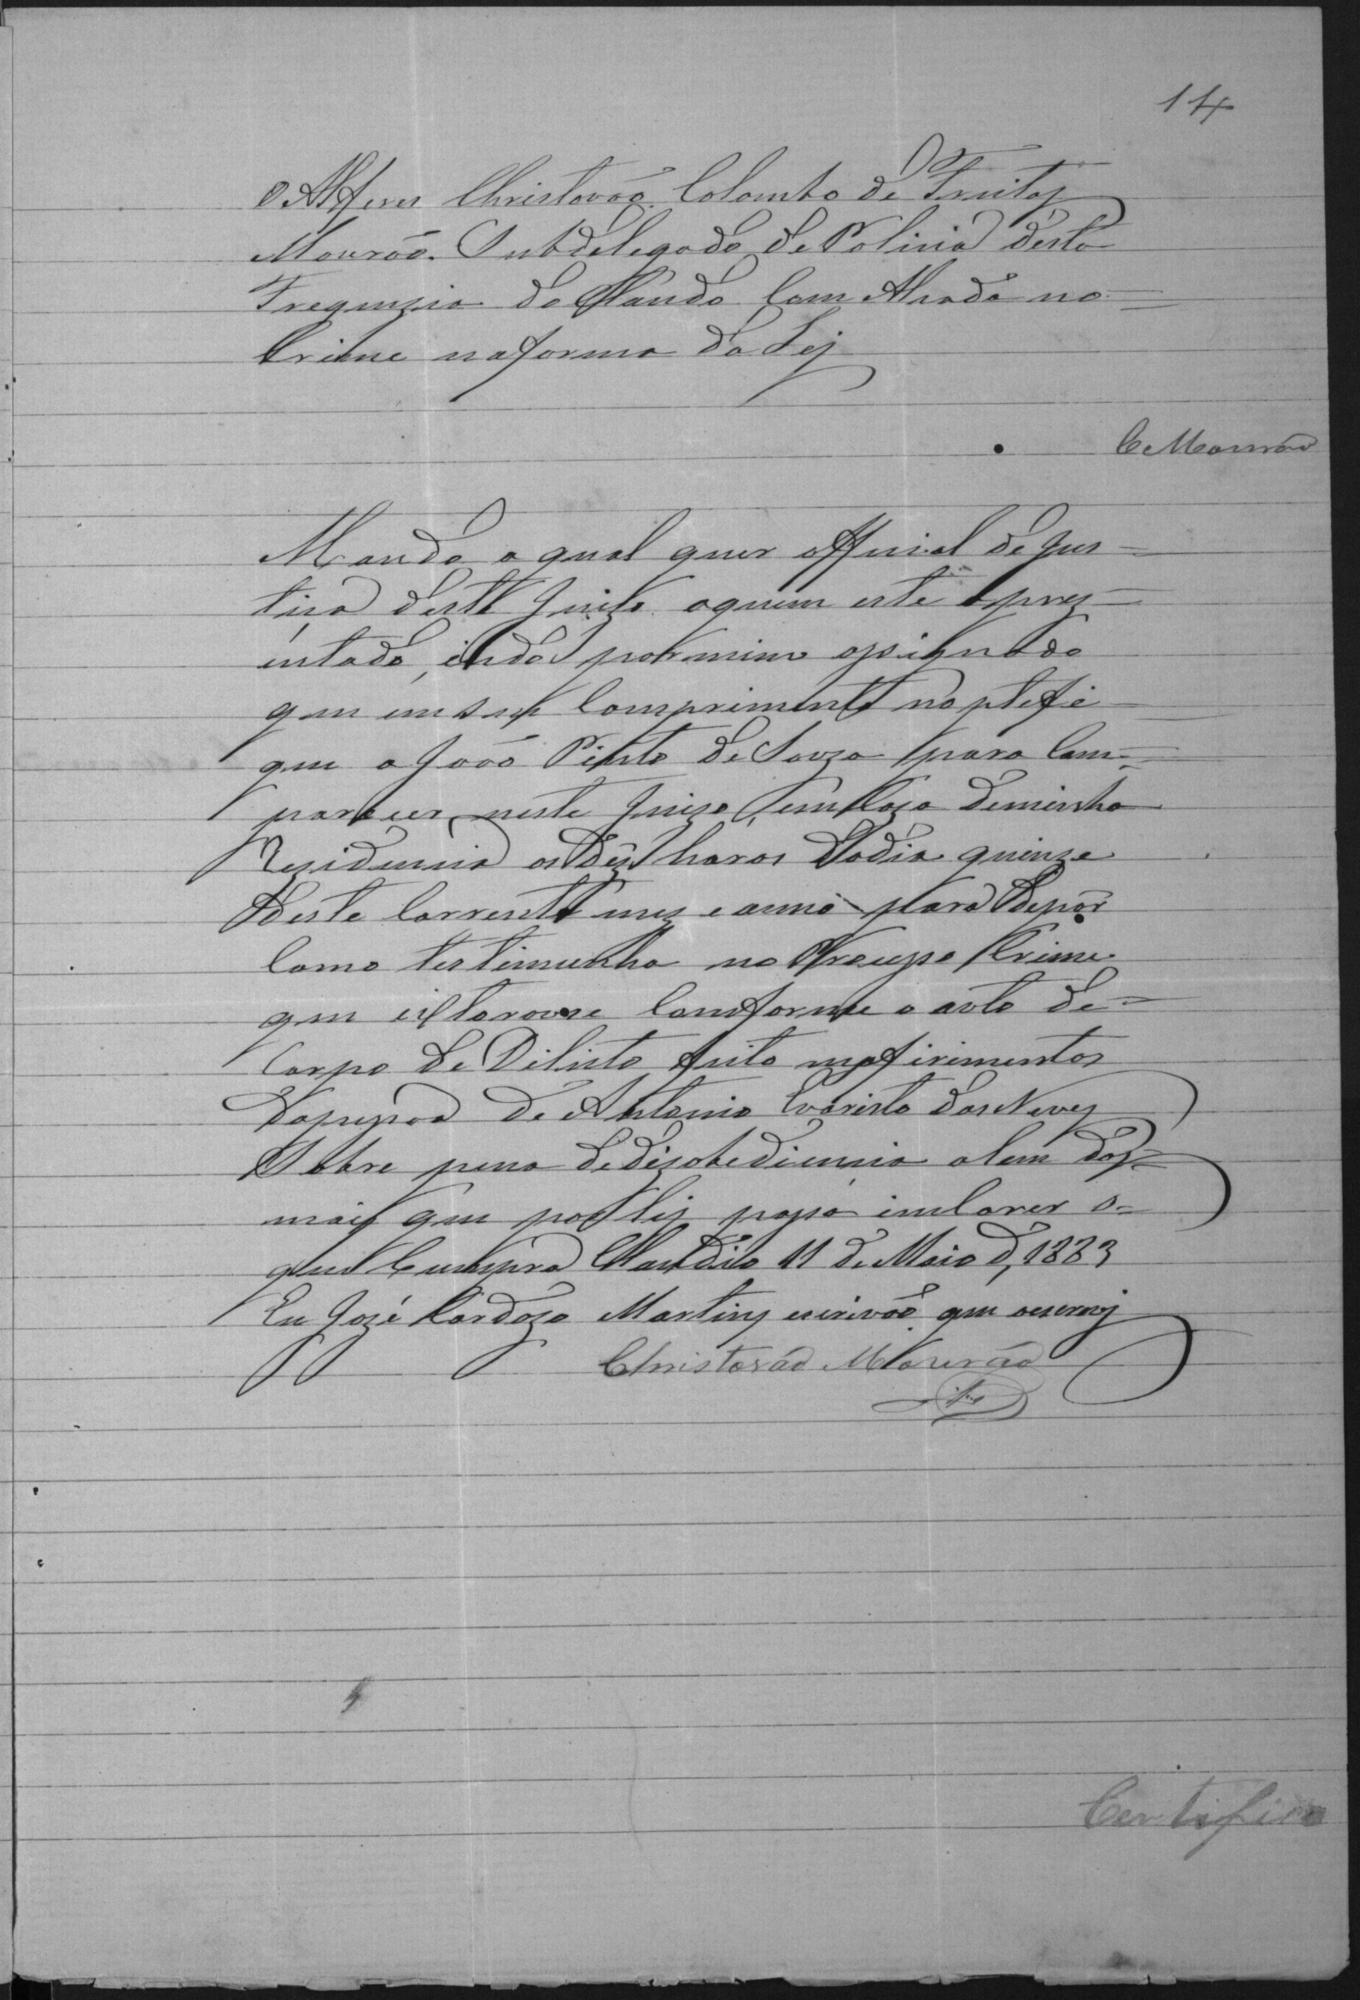 14
O Alferes Christovão Colombo de Freitas
Mourão. Subdelegado de Policia desta
Freguzia do Claudo Com Alsada no
Crime na forma da Lej
C. Mourão
Mando a qual quer official de Jus-
tisa deste Juizo aquem este aprez-
entado, indo por mim assignado
que em seu Comprimento notefi-
que a João Pinto de Souza para Com-
parecer neste Juizo em Caza deminha
Rezidencia as dês horas do dia quinze
deste Corrente mez e anno para Depôr
Como testimunha no Procêsso Crime
que Conforme o auto de
Corpo de Dilicto feito nos firimentos
da pessoa de Antonio Evaristo das Neves
Sobre pena de dezobediencia alem das
mais que por lej possa incorrer o-
que Cumpra Claudio 11 de Maio d, 1883
Eu Jozé Cardozo Martins escrivão que escrevj
Christovão Mourão
Certifico